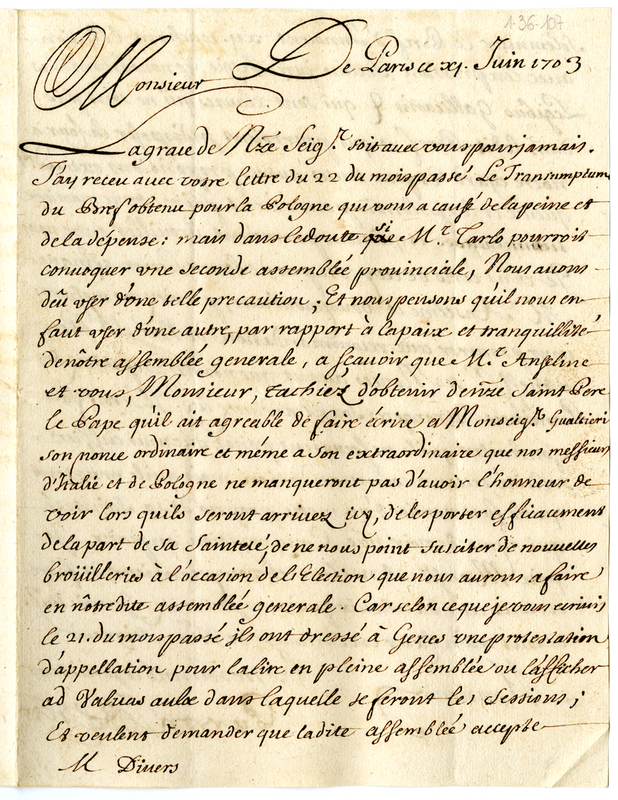 1-36-107
De Paris ce xj. Juin 1703
Monsieur
La grace de Nre Seigr. soit avec vous pour jamais.
J'ay receu avec vostre lettre du 22 du mois passé Le Transumptum
du Bref obtenu pour la Pologne qui vous a causé de la peine et
de la dépense: mais dans le doute si Mr. Tarlo pourroit
convoquer vne seconde assemblée provinciale, Nous avons
deû vser d'vne telle precaution; Et nous pensons qu'il nous en
faut vser d'vne autre, par rapport à la paix et tranquillité
de nôtre assemblée generale, a sçavoir que Mr. Anselme
et vous, Monsieur, tachiez d'obtenir de nre Saint Pere
le Pape qu'il ait agreable de faire écrire a Monseigr. Gualtieri
son nonce ordinaire et méme a son extraordinaire que nos messieurs
d'Italie et de Pologne ne manqueront pas d'avoir l'honneur de
voir lors quils seront arrivez icy, de les porter efficacement
de la part de sa Sainteté, de ne nous point susciter de nouvelles
broüilleries à l'occasion de l'Election que nous aurons a faire
en nôtredite assemblée generale. Car selon ce que je vous écrivis
le 21. du mois passé jls ont dressé à Genes vne protestation
d'appellation pour la lire en pleine assemblée ou l'afficher
ad Valuas aulæ dans laquelle se feront les sessions;
Et veulent demander que ladite assemblée accepte
M Divers